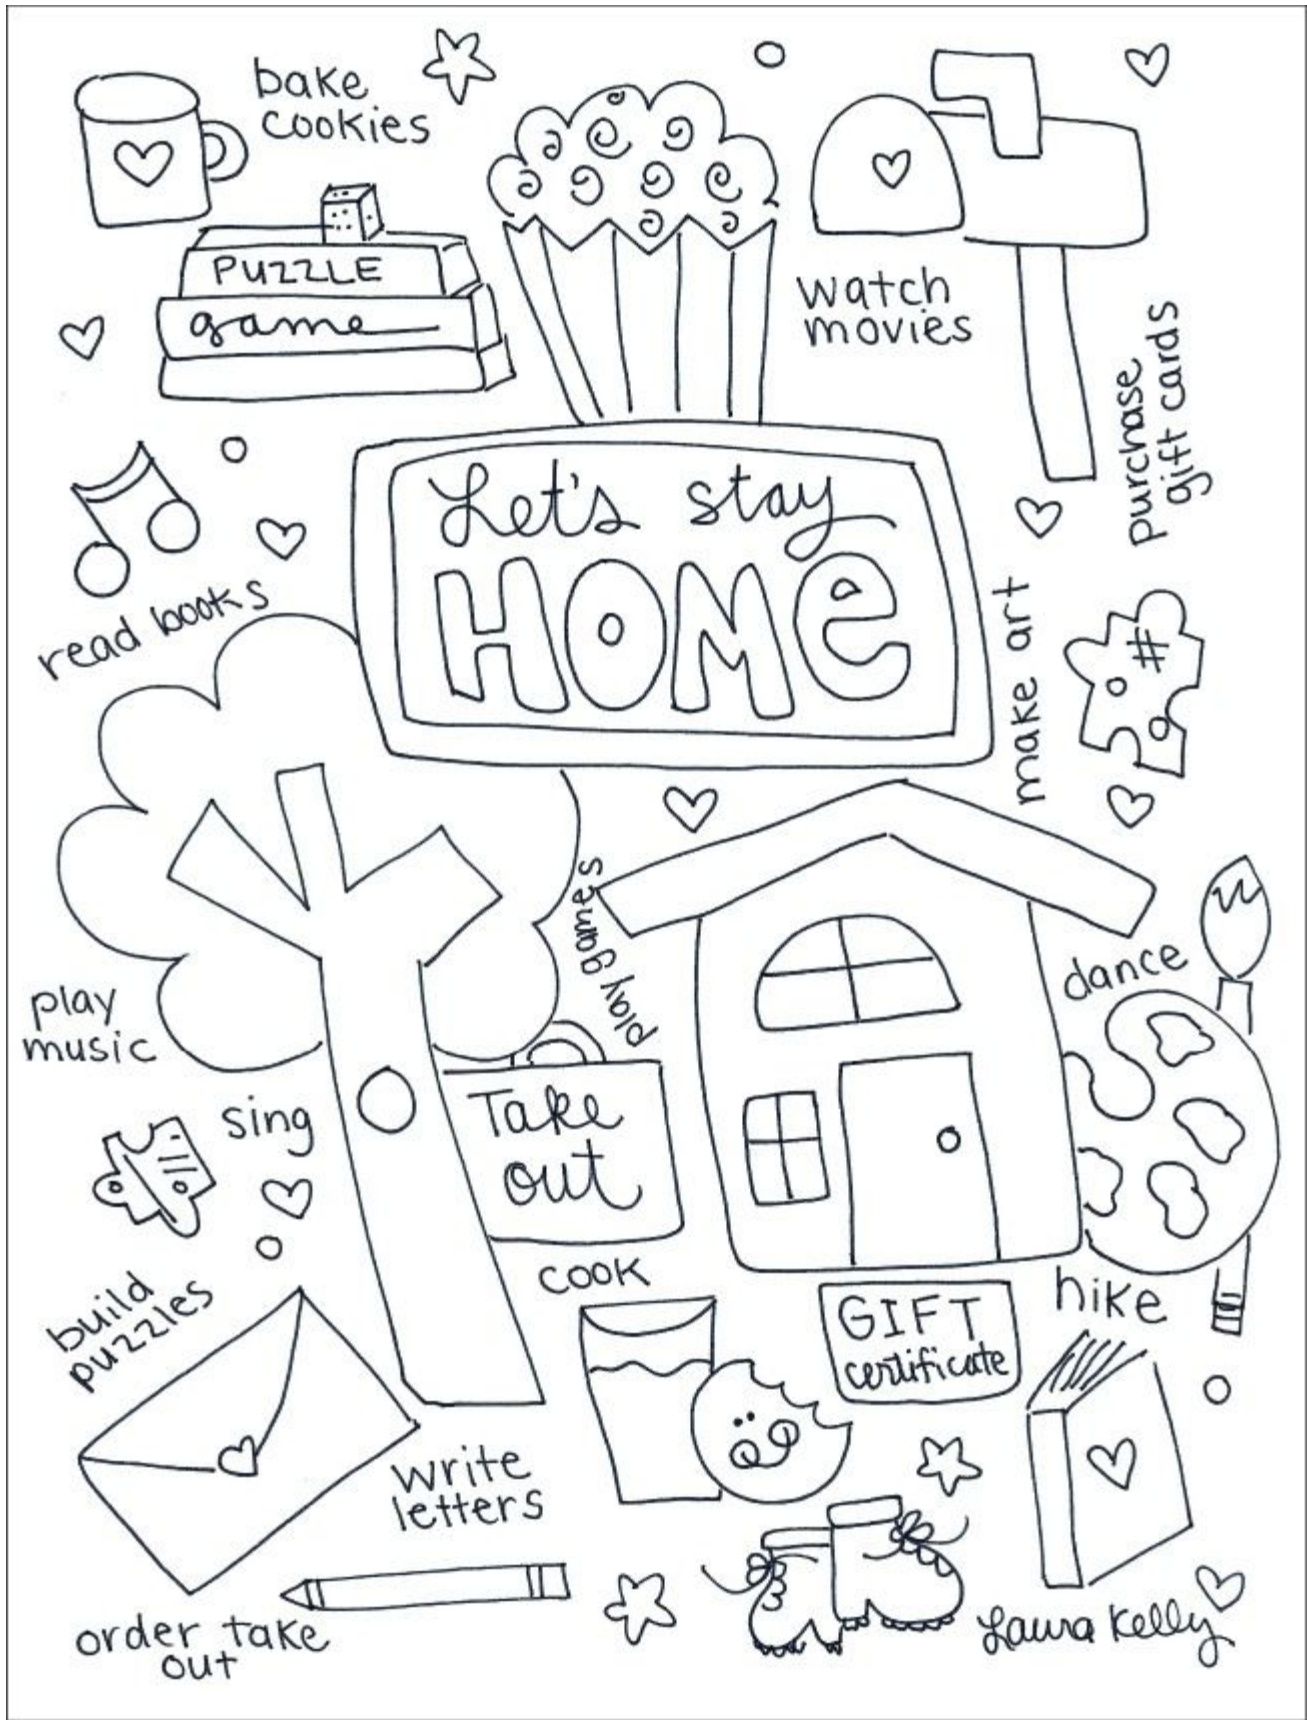 bake
cookies
PUZZLE
game
watch
movies
purchase
gift cards
Let's stay
HOMe
read books
make art
#
play games
dance
play
music
sing
Take
out
build
puzzles
cook
GIFT
certificate
hike
write
letters
order take
out
Laura Kelly